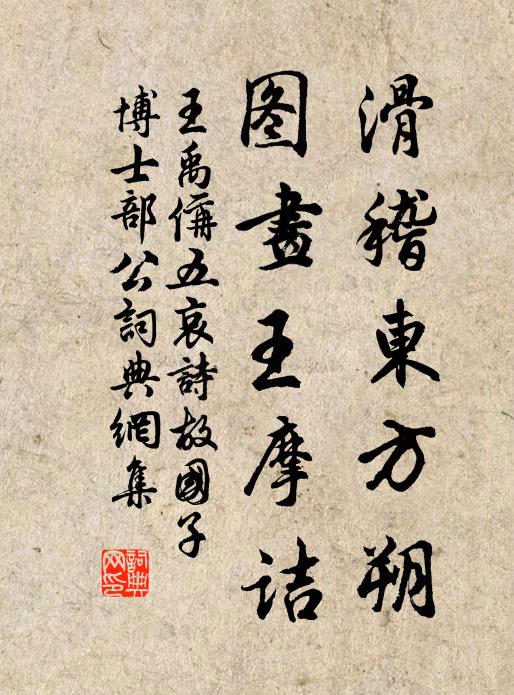 滑稽東方朔
图畫王摩詰
王禹偁五哀詩故國子
博士部公詞典網集
詞典网印